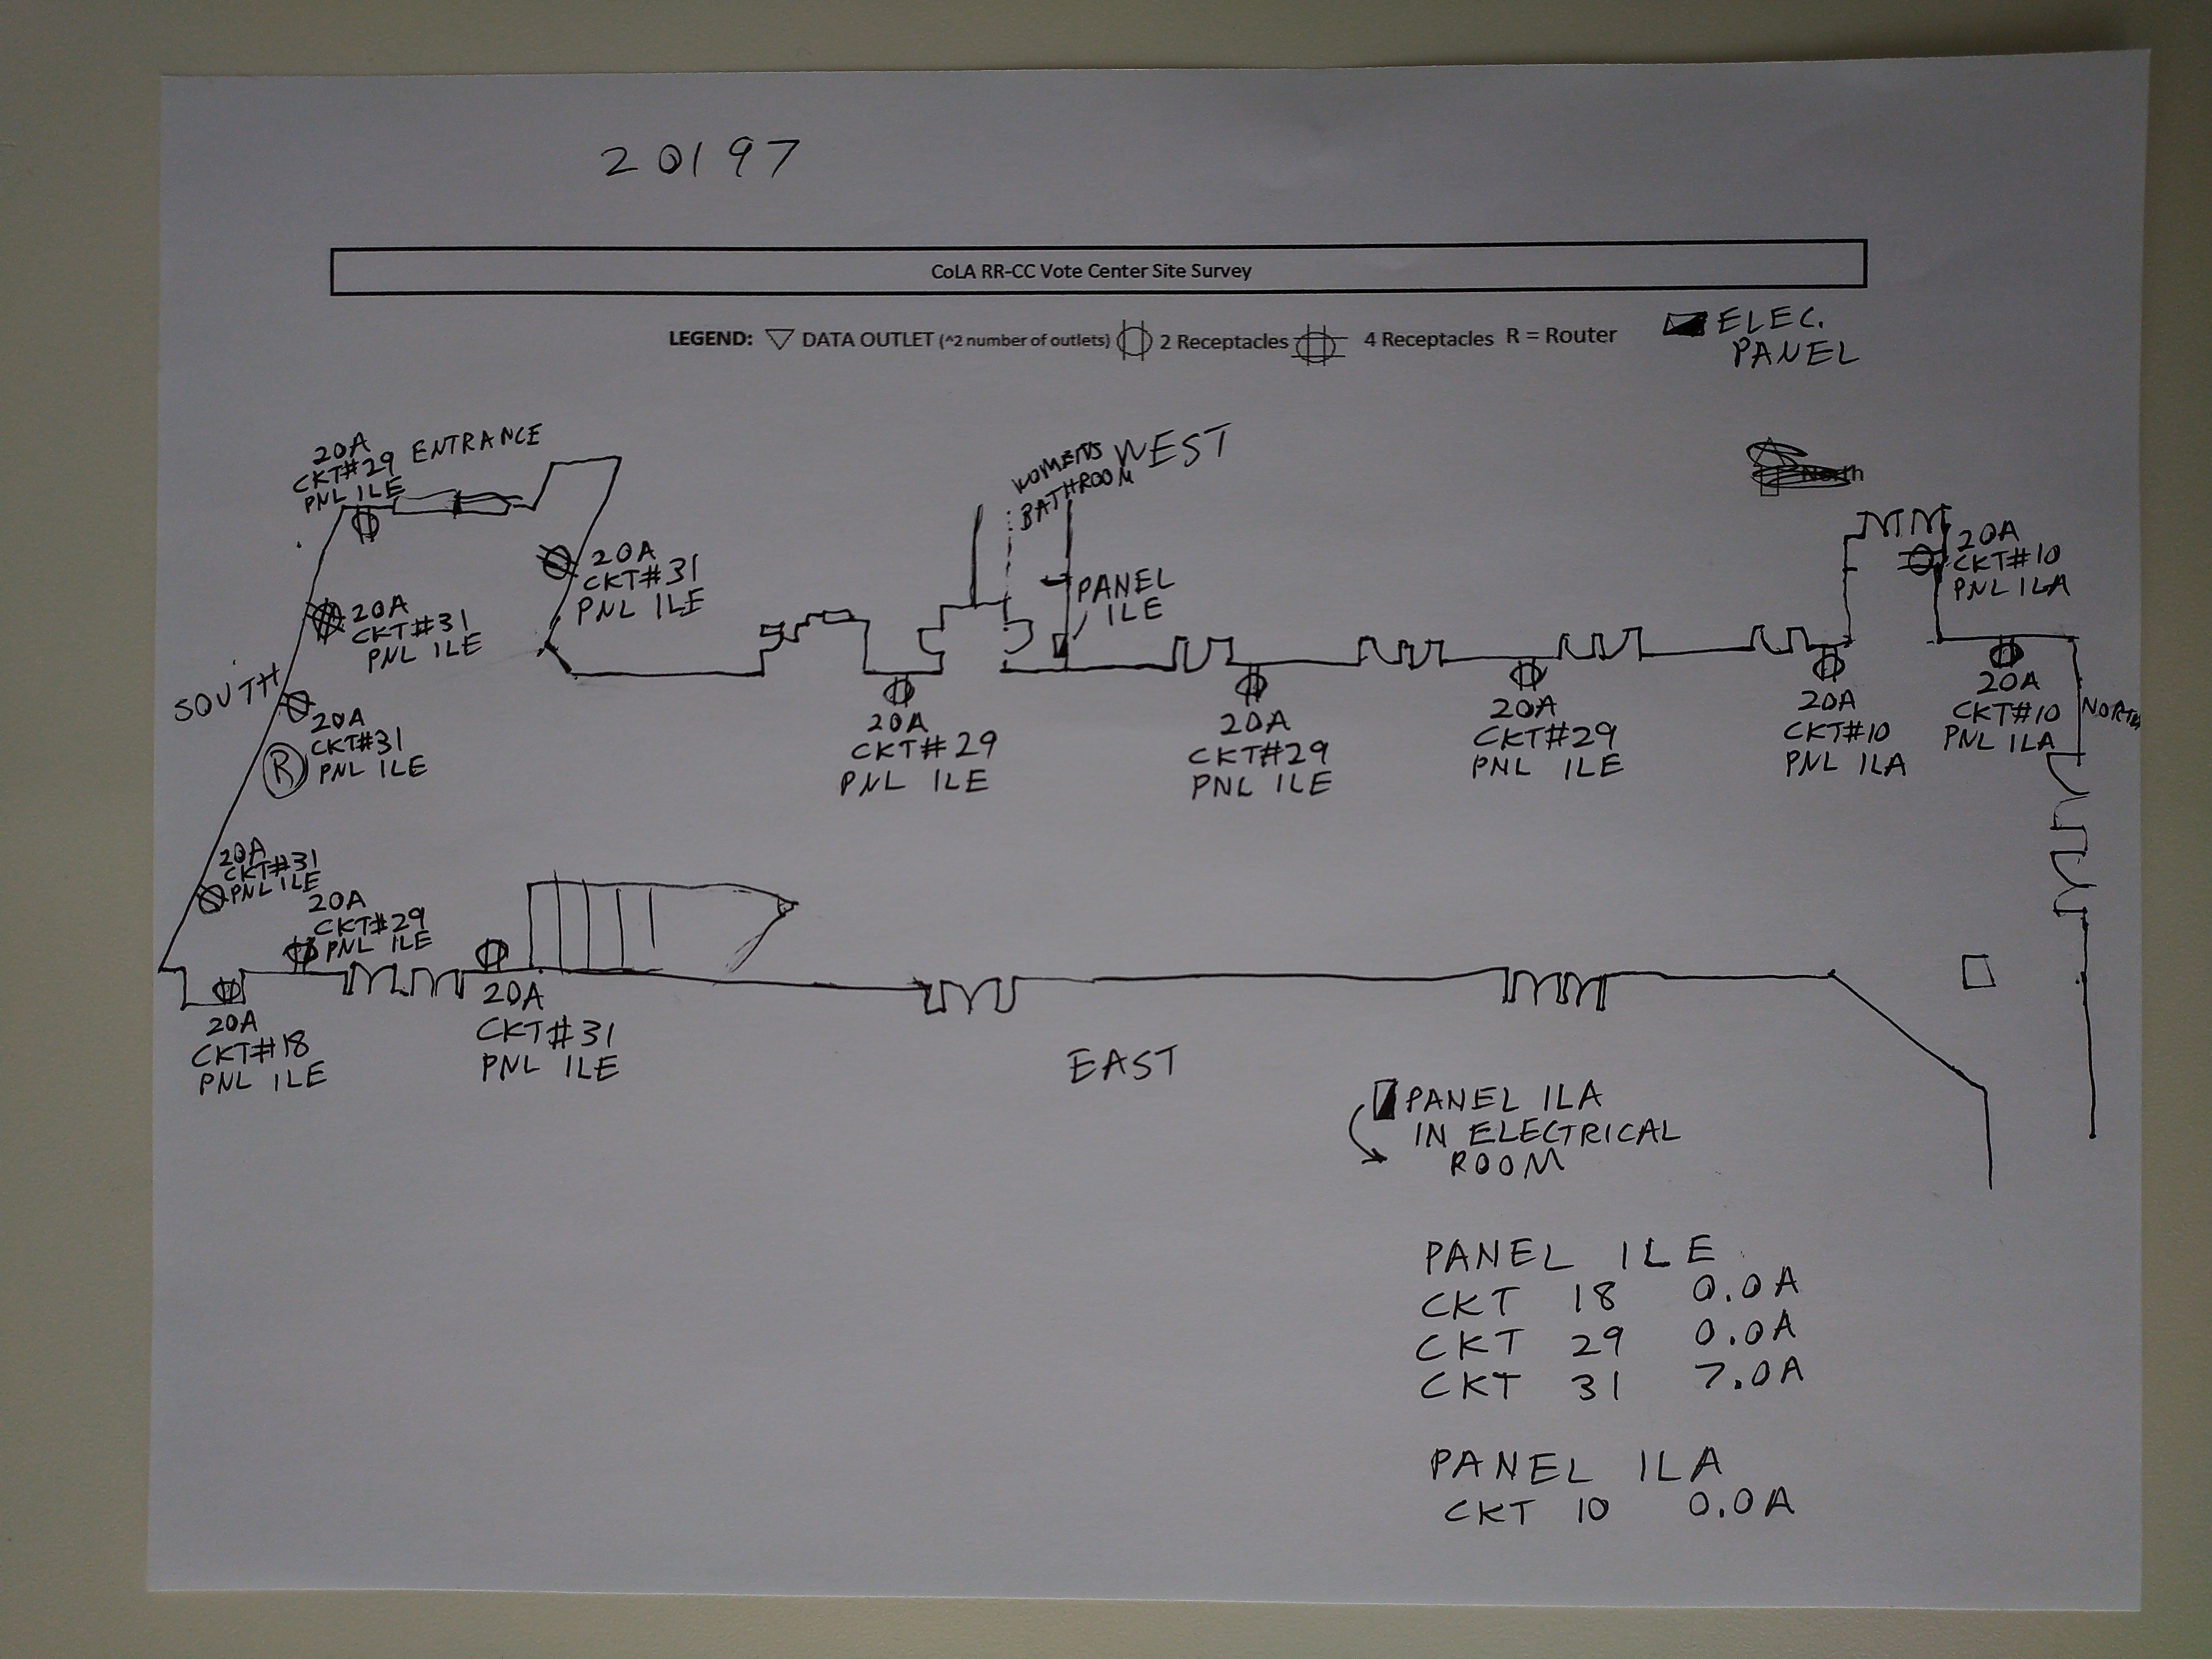 20197
CoLA RR-CC Vote Center Site Survey
LEGEND: DATA OUTLET (^2 number of outlets) 2 Receptacles 4 Receptacles R = Router
ELEC.
PANEL
20A
CKT#29
PNL 1LE
ENTRANCE
WOMENS
BATHROOM
WEST
North
20A
CKT#31
PNL 1LE
PANEL
1LE
20A
CKT#10
PNL 1LA
20A
CKT#31
PNL 1LE
SOUTH
20A
CKT#31
PNL 1LE
R
20A
CKT#29
PNL 1LE
20A
CKT#29
PNL 1LE
20A
CKT#29
PNL 1LE
20A
CKT#10
PNL 1LA
20A
CKT#10
PNL 1LA
NORTH
20A
CKT#31
PNL 1LE
20A
CKT#29
PNL 1LE
20A
CKT#18
PNL 1LE
20A
CKT#31
PNL 1LE
EAST
PANEL 1LA
IN ELECTRICAL
ROOM
PANEL 1LE
CKT 18 0.0A
CKT 29 0.0A
CKT 31 7.0A
PANEL 1LA
CKT 10 0.0A